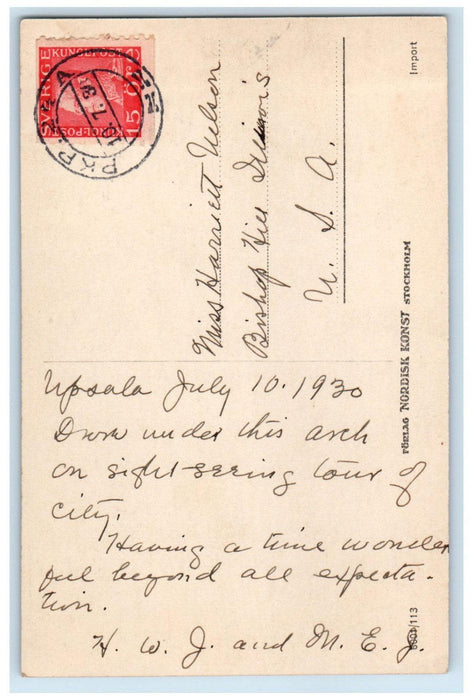 SVERIGE
15 ÖRE
Import
Miss Harriett Nelson
Bishop Hill Illinois
U. S. A.
FÖRLAG NORDISK KONST STOCKHOLM
Upsala July 10. 1930
Drove under this arch
on sight-seeing tour of
city.
Having a time wonder
ful beyond all expecta-
tion.
H. W. J. and M. E. J.
/113